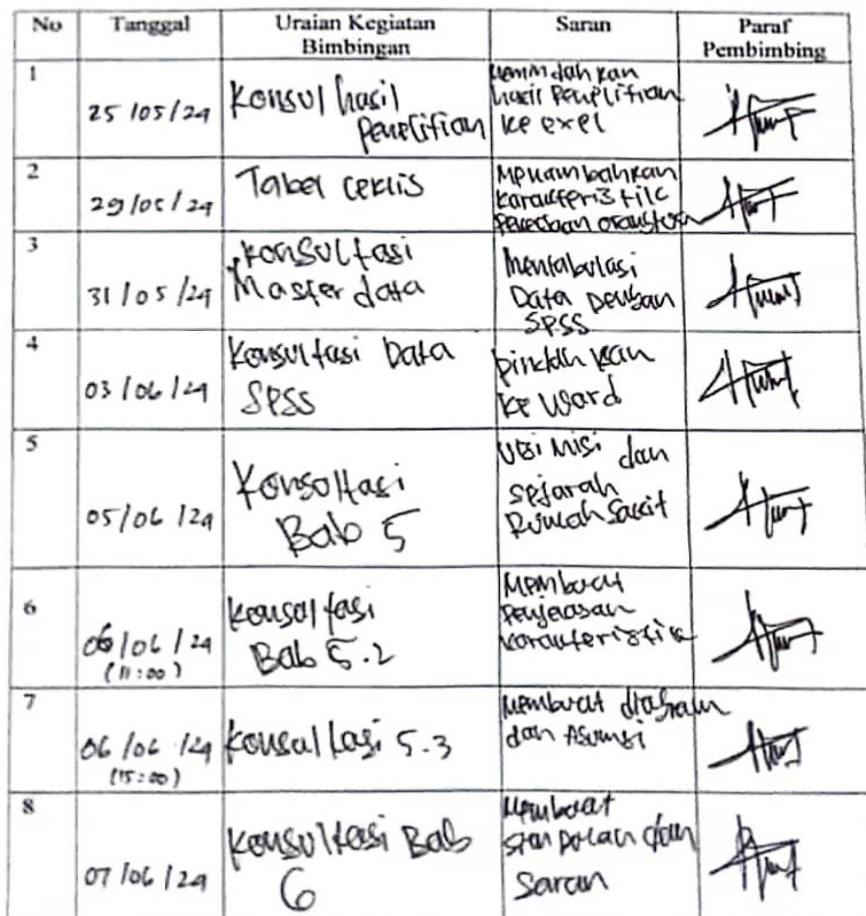 No Tanggal Uraian Kegiatan Bimbingan Saran Paraf Pembimbing
1
25/05/24
Konsul hasil
penelitian
Memindahkan
hasil Penelitian
ke exel
2
29/05/24
Tabel ceklis
Menambahkan
karakteristik
Pekerjaan orangtua
3
31/05/24
Konsultasi
Master data
Mentabulasi
Data dengan
SPSS
4
03/06/24
Konsultasi Data
SPSS
Pindahkan
ke Word
5
05/06/24
Konsultasi
Bab 5
Visi Misi dan
Sejarah
Rumah Sakit
6
06/06/24
(11:00)
Konsultasi
Bab 5.2
Membuat
Penjelasan
karakteristik
7
06/06/24
(15:00)
Konsultasi 5.3
Membuat diagram
dan Asumsi
8
07/06/24
Konsultasi Bab
6
Membuat
simpulan dan
Saran